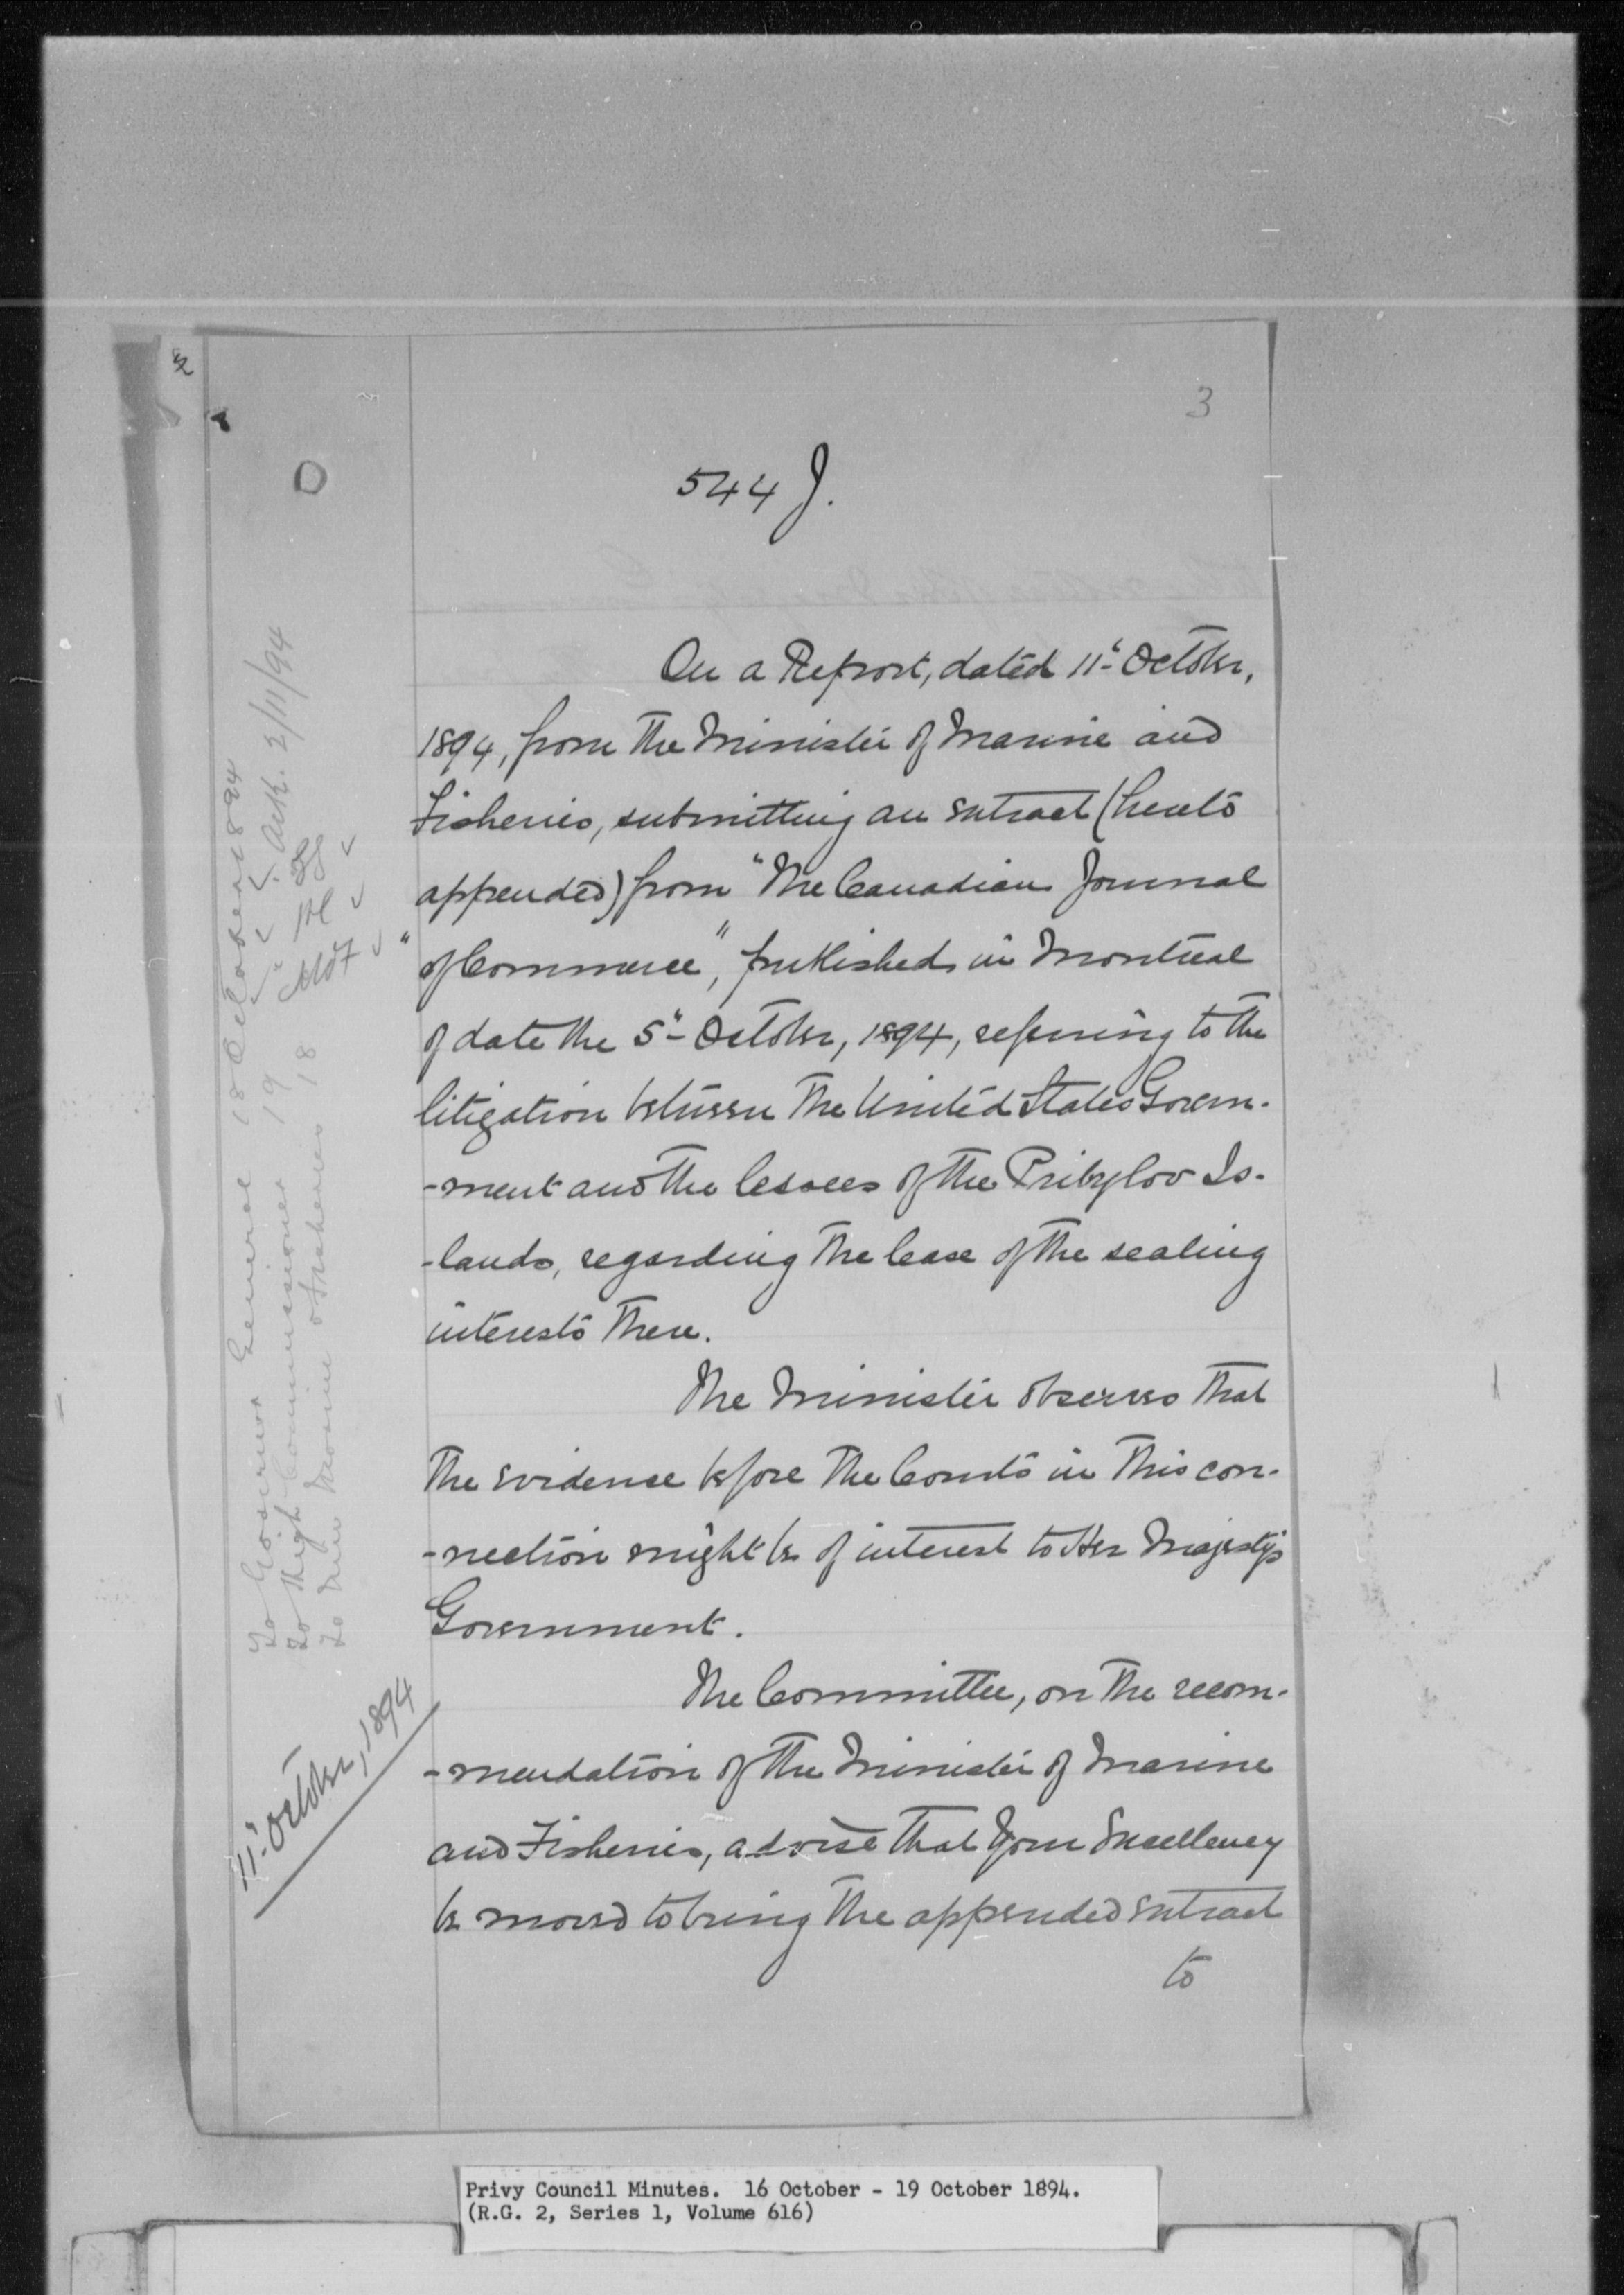 3
544 J.
On a Report, dated 11th October,
1894, from the Minister of Marine and
Fisheries, submitting an extract (hereto
appended) from "The Canadian Journal
"of Commerce", published in Montreal
of date the 5th October, 1894, referring to the
litigation between the United States Govern-
-ment and the lessees of the Pribylov Is-
-lands, regarding the lease of the sealing
interests there.
The Minister observes that
the evidence before the Courts in this con-
-nection might be of interest to Her Majesty's
Government.
The Committee, on the recom-
-mendation of the Minister of Marine
and Fisheries, advise that Your Excellency
be moved to bring the appended extract
to
To Governor General 18 October 1894
To High Commissioner 19
To Min Marine & Fisheries 18
Ack. 2/11/94
M & F
11th October, 1894
Privy Council Minutes. 16 October - 19 October 1894.
(R.G. 2, Series 1, Volume 616)